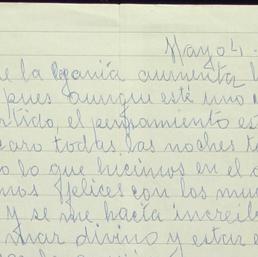 Mayo 4 -
e la lejanía aumenta l
pues aunque esté uno
rtido, el pensamiento es
caro todas las noches t
o lo que hicimos en el
mos felices con los mu
y se me hacía increíb
mar divino y estar e